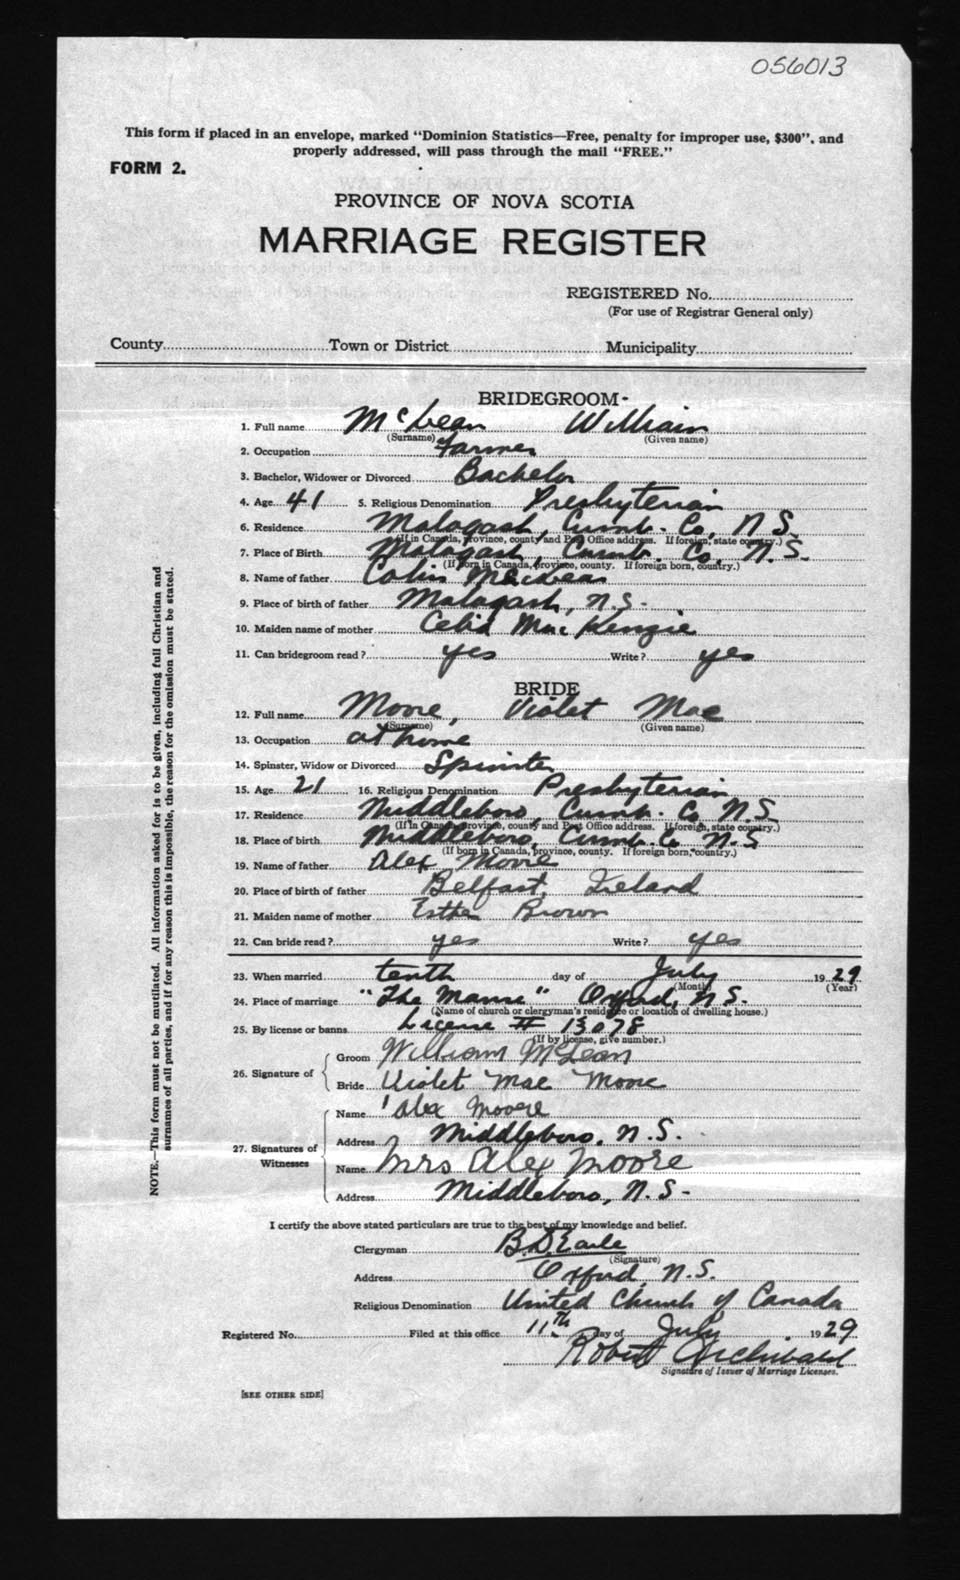 056013
This form if placed in an envelope, marked "Dominion Statistics—Free, penalty for improper use, $300", and
properly addressed, will pass through the mail "FREE."
FORM 2.
PROVINCE OF NOVA SCOTIA
MARRIAGE REGISTER
REGISTERED No.
(For use of Registrar General only)
County Town or District Municipality
BRIDEGROOM
1. Full name McLean William
(Surname) (Given name)
2. Occupation Farmer
3. Bachelor, Widower or Divorced Bachelor
4. Age 41 5. Religious Denomination Presbyterian
6. Residence Malagash, Cumb. Co, N.S.
(If in Canada, province, county and Post Office address. If foreign, state country.)
7. Place of Birth Malagash, Cumb. Co. N.S.
(If born in Canada, province, county. If foreign born, country.)
8. Name of father Colin MacLean
9. Place of birth of father Malagash, N.S.
10. Maiden name of mother Celia MacKenzie
11. Can bridegroom read? yes Write? yes
BRIDE
12. Full name Moore, Violet Mae
(Surname) (Given name)
13. Occupation at home
14. Spinster, Widow or Divorced Spinster
15. Age 21 16. Religious Denomination Presbyterian
17. Residence Middleboro, Cumb. Co N.S.
(If in Canada province, county and Post Office address. If foreign, state country.)
18. Place of birth Middleboro, Cumb. Co N.S
(If born in Canada, province, county. If foreign born, country.)
19. Name of father Alex Moore
20. Place of birth of father Belfast, Ireland
21. Maiden name of mother Esther Brown
22. Can bride read? yes Write? yes
23. When married tenth day of July 1929
(Month) (Year)
24. Place of marriage "The Manse" Oxford, N.S.
(Name of church or clergyman's residence or location of dwelling house.)
25. By license or banns License # 13078
(If by license, give number.)
26. Signature of Groom William McLean
Bride Violet Mae Moore
27. Signatures of Witnesses Name Alex Moore
Address Middleboro, N.S.
Name Mrs Alex Moore
Address Middleboro, N.S.
I certify the above stated particulars are true to the best of my knowledge and belief.
Clergyman B.D. Earle
(Signature)
Address Oxford, N.S.
Religious Denomination United Church of Canada
Registered No. Filed at this office 11th day of July 1929
Robert Archibald
Signature of Issuer of Marriage Licenses.
[SEE OTHER SIDE]
NOTE.—This form must not be mutilated. All information asked for is to be given, including full Christian and
surnames of all parties, and if for any reason this is impossible, the reason for the omission must be stated.